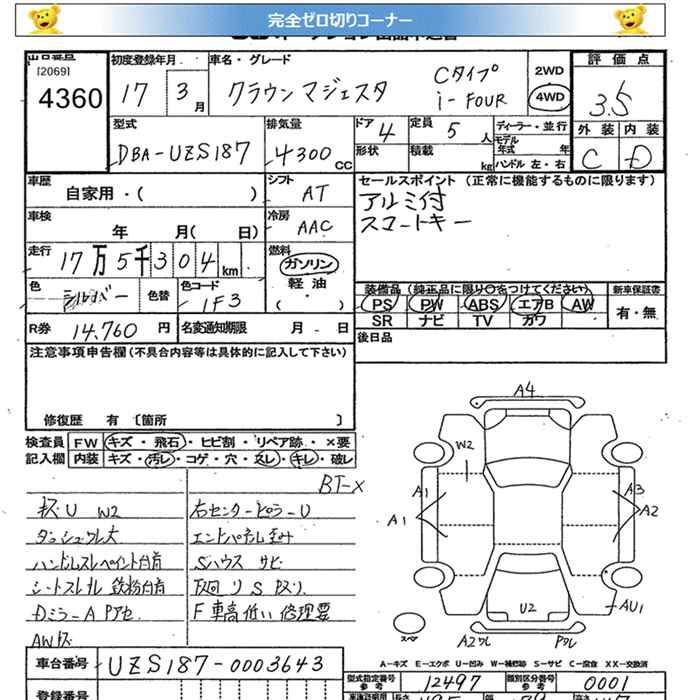 完全ゼロ切りコーナー
出品番号 初度登録年月 車名・グレード 評価点
[2069]
4360
17 3月
クラウン マジェスタ Cタイプ i-FOUR
2WD
4WD
3.5
外装 内装
C D
型式 排気量 ドア 4 定員 5人 ディーラー・並行
DBA-UZS187 4300cc 形状 積載 kg モデル年式 年
ハンドル 左・右
車歴 自家用・( ) シフト AT
セールスポイント (正常に機能するものに限ります)
アルミ付
スマートキー
車検 年 月( 日) 冷房 AAC
走行 17万5千304km 燃料 ガソリン
軽油
・( )
色 シルバー 色替 色コード 1F3
装備品 (純正品に限り○をつけてください) 新車保証書
PS PW ABS エアB AW 有・無
SR ナビ TV カワ
R券 14,760円 名変通知期限 月 - 日
後日品
注意事項申告欄(不具合内容等は具体的に記入して下さい)
修復歴 有 〔箇所 〕
検査員 FW キズ・飛石・ヒビ割・リペア跡・×要
記入欄 内装 キズ・汚レ・コゲ・穴・スレ・キレ・破レ
BTーX
キズU W2 右センターピラーU
ダッシュワレ大 エンドパネル歪み
ハンドルスレペイント白有 Sハウス サビ
シートスレ凡 鉄粉白有 下回リ S サリ
Dミラー A アセ F 車高低い 修理要
AWキズ
A4
W2
A1
A1
A3
A2
U2
AU1
スペア
A2ワレ
Pワレ
A-キズ E-エクボ U-凹み W-補修跡 S-サビ C-腐食 XX-交換済
車台番号 UZS187-0003643
型式指定番号 参考 12497 類別区分番号 参考 0001
登録番号